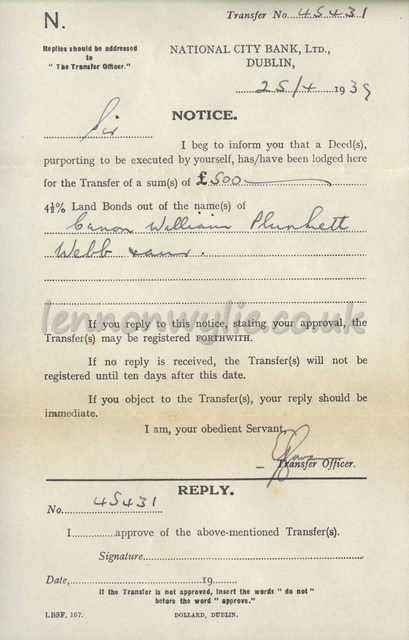 N.
Transfer No. 45431
Replies should be addressed
to
" The Transfer Officer."
NATIONAL CITY BANK, LTD.,
DUBLIN,
25/4 1939
NOTICE.
Sir
I beg to inform you that a Deed(s),
purporting to be executed by yourself, has/have been lodged here
for the Transfer of a sum(s) of £500
4½% Land Bonds out of the name(s) of
Canon William Plunkett
Webb
lennonwylie.co.uk
If you reply to this notice, stating your approval, the
Transfer(s) may be registered FORTHWITH.
If no reply is received, the Transfer(s) will not be
registered until ten days after this date.
If you object to the Transfer(s), your reply should be
immediate.
I am, your obedient Servant,
Transfer Officer.
REPLY.
No. 45431
I..............approve of the above-mentioned Transfer(s).
Signature
Date, 19
If the Transfer is not approved, insert the words " do not "
before the word " approve."
LBSF, 167.
DOLLARD, DUBLIN.